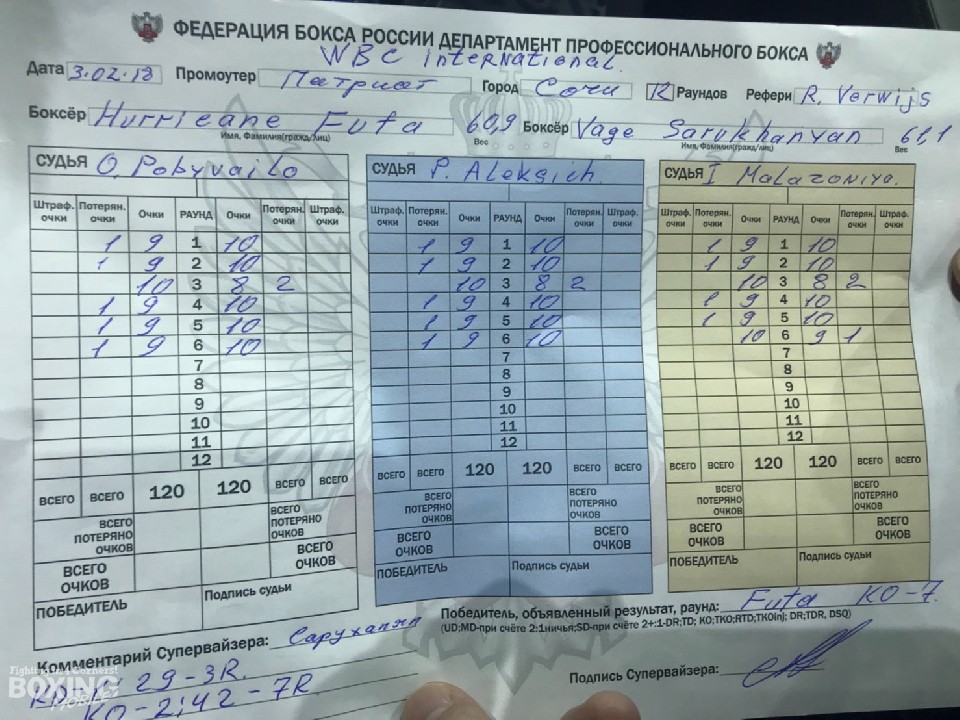 ФЕДЕРАЦИЯ БОКСА РОССИИ ДЕПАРТАМЕНТ ПРОФЕССИОНАЛЬНОГО БОКСА
WBC international.
Дата 3.02.18 Промоутер Патриот Город Сочи 12 Раундов Рефери R. Verwijs
Боксёр Hurricane Futa 60,9 Боксёр Vage Sarukhanyan 61,1
Имя, Фамилия(гражд/лиц) Вес Имя, Фамилия(гражд/лиц) Вес
СУДЬЯ O. Pobyvailo
Штраф. очки Потерян. очки Очки РАУНД Очки Потерян. очки Штраф. очки
1 9 1 10
1 9 2 10
10 3 8 2
1 9 4 10
1 9 5 10
1 9 6 10
7
8
9
10
11
12
ВСЕГО ВСЕГО 120 120 ВСЕГО ВСЕГО
ВСЕГО ПОТЕРЯНО ОЧКОВ ВСЕГО ПОТЕРЯНО ОЧКОВ
ВСЕГО ОЧКОВ ВСЕГО ОЧКОВ
ПОБЕДИТЕЛЬ Подпись судьи
СУДЬЯ P. Aleksich.
Штраф. очки Потерян. очки Очки РАУНД Очки Потерян. очки Штраф. очки
1 9 1 10
1 9 2 10
10 3 8 2
1 9 4 10
1 9 5 10
1 9 6 10
7
8
9
10
11
12
ВСЕГО ВСЕГО 120 120 ВСЕГО ВСЕГО
ВСЕГО ПОТЕРЯНО ОЧКОВ ВСЕГО ПОТЕРЯНО ОЧКОВ
ВСЕГО ОЧКОВ ВСЕГО ОЧКОВ
ПОБЕДИТЕЛЬ Подпись судьи
СУДЬЯ I Malazoniya.
Штраф. очки Потерян. очки Очки РАУНД Очки Потерян. очки Штраф. очки
1 9 1 10
1 9 2 10
10 3 8 2
1 9 4 10
1 9 5 10
10 6 9 1
7
8
9
10
11
12
ВСЕГО ВСЕГО 120 120 ВСЕГО ВСЕГО
ВСЕГО ПОТЕРЯНО ОЧКОВ ВСЕГО ПОТЕРЯНО ОЧКОВ
ВСЕГО ОЧКОВ ВСЕГО ОЧКОВ
ПОБЕДИТЕЛЬ Подпись судьи
Победитель, объявленный результат, раунд: Futa KO-7.
(UD;MD-при счёте 2:1ничья;SD-при счёте 2+:1-DR;TD; KO;TKO;RTD;TKOinj; DR;TDR, DSQ)
Комментарий Супервайзера: Саруханян
29-3R.
KO-2;42-7R
Подпись Супервайзера:
Fighting in 4 Corners!
BOXING
MOBILE